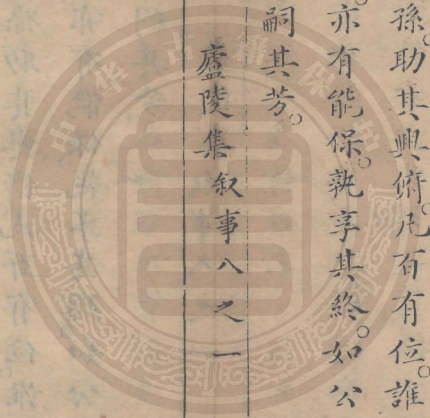 孫助其興俯凡百有位誰
亦有能保孰享其終如公
嗣其芳
廬陵集敘事八之一